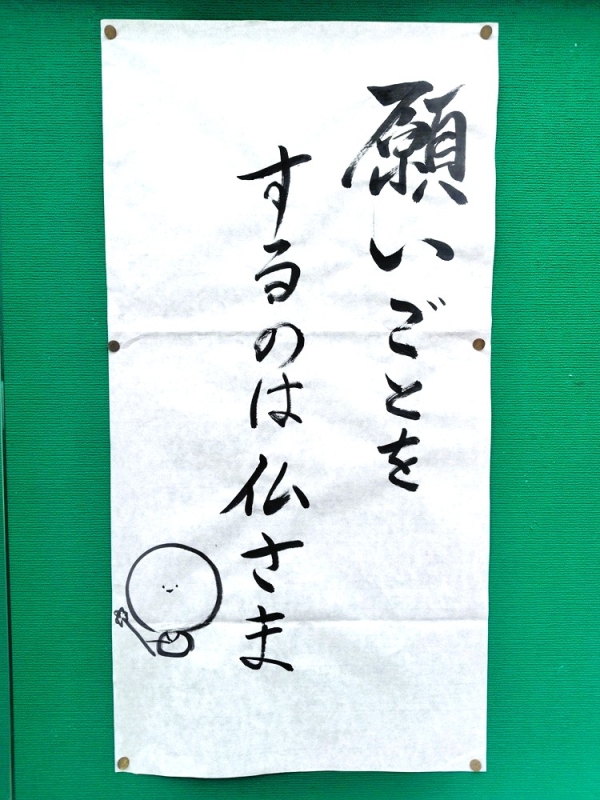 願いごとを
するのは仏さま